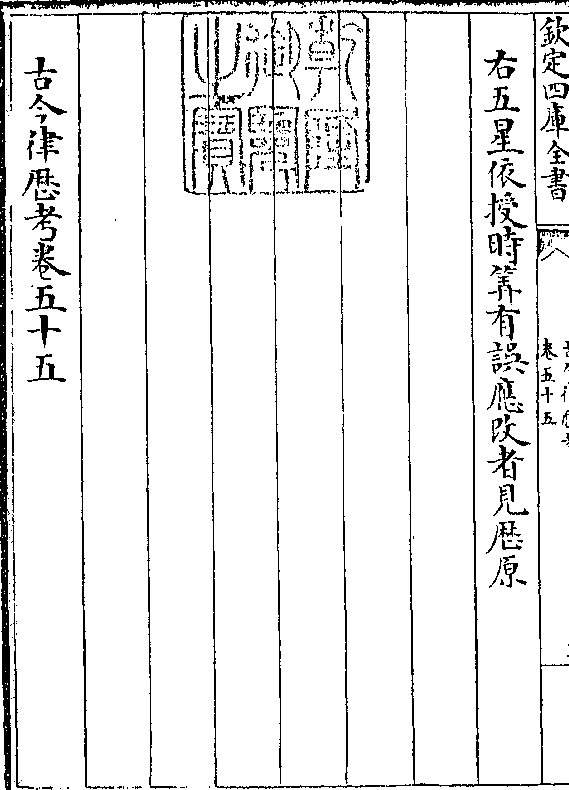 欽定四庫全書
卷五十五
右五星依授時筭有誤應改者見厯原
乾隆御覽之寳
古今律厯考卷五十五